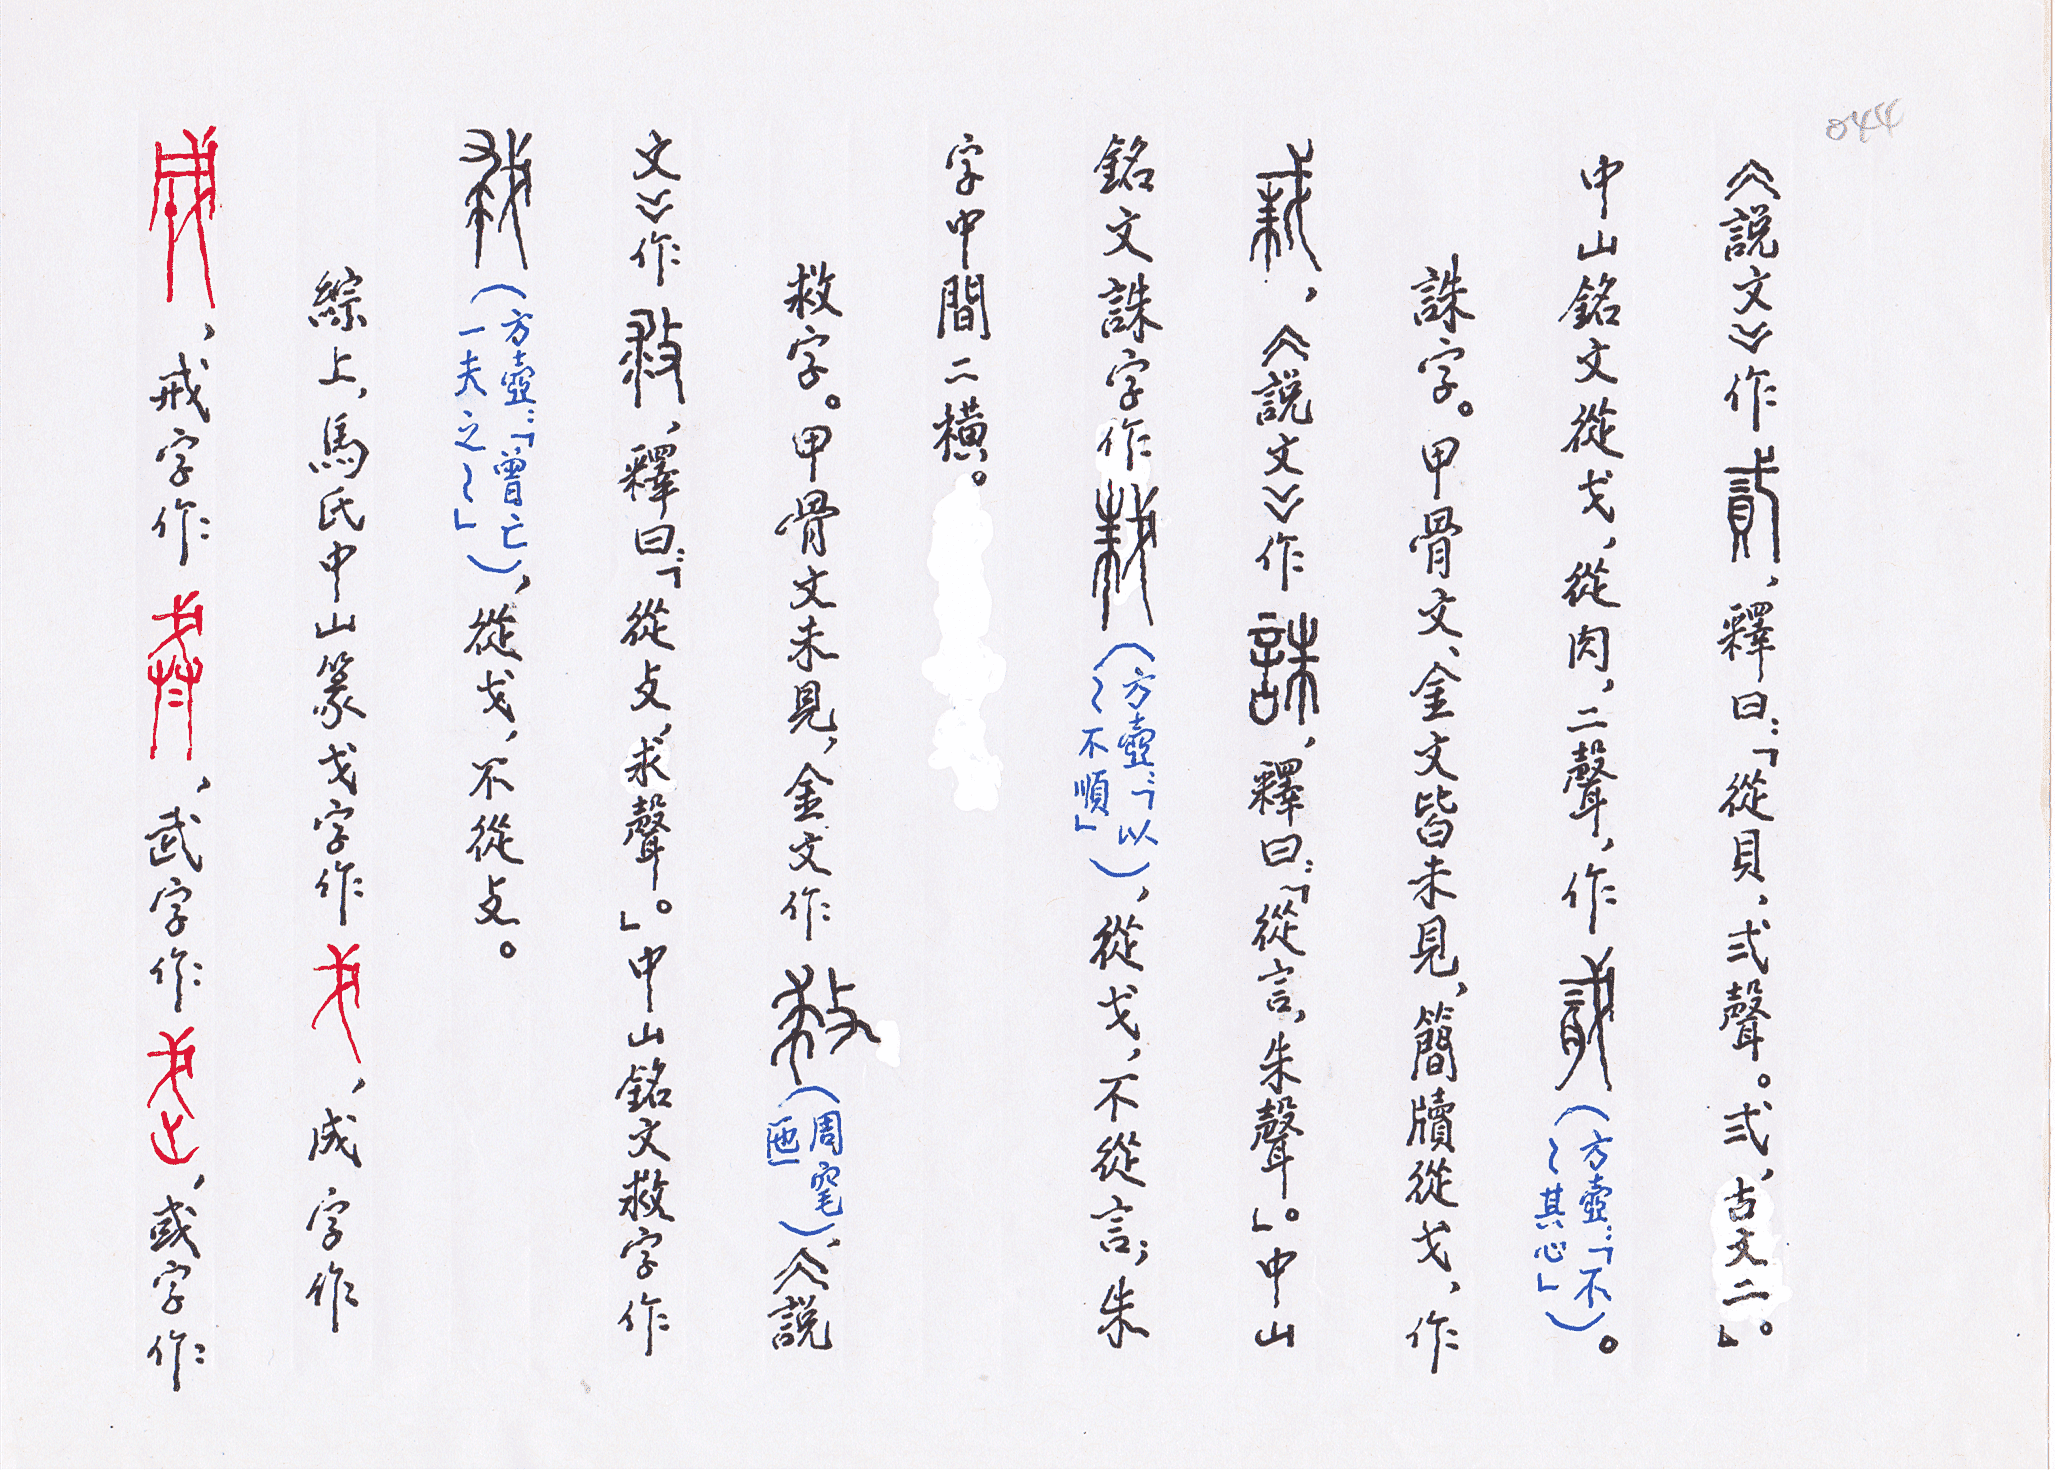 044
《説文》作貳，釋曰：「從貝，弍聲。弍，古文二」。
中山銘文從戈，從肉，二聲，作（方壺：「不〻其心」）。
誅字。甲骨文、金文皆未見，簡牘從戈，作
，《説文》作誅，釋曰：「從言，朱聲」。中山
銘文誅字作（方壺：「以〻不順」），從戈，不從言；朱
字中間二橫。
救字。甲骨文未見，金文作（周窰），《説
文》作救，釋曰：「從攴，求聲。」中山銘文救字作
（方壺：「曾亡一夫之〻」），從戈，不從攴。
綜上，馬氏中山篆戈字作，成字作
，戒字作，武字作，或字作